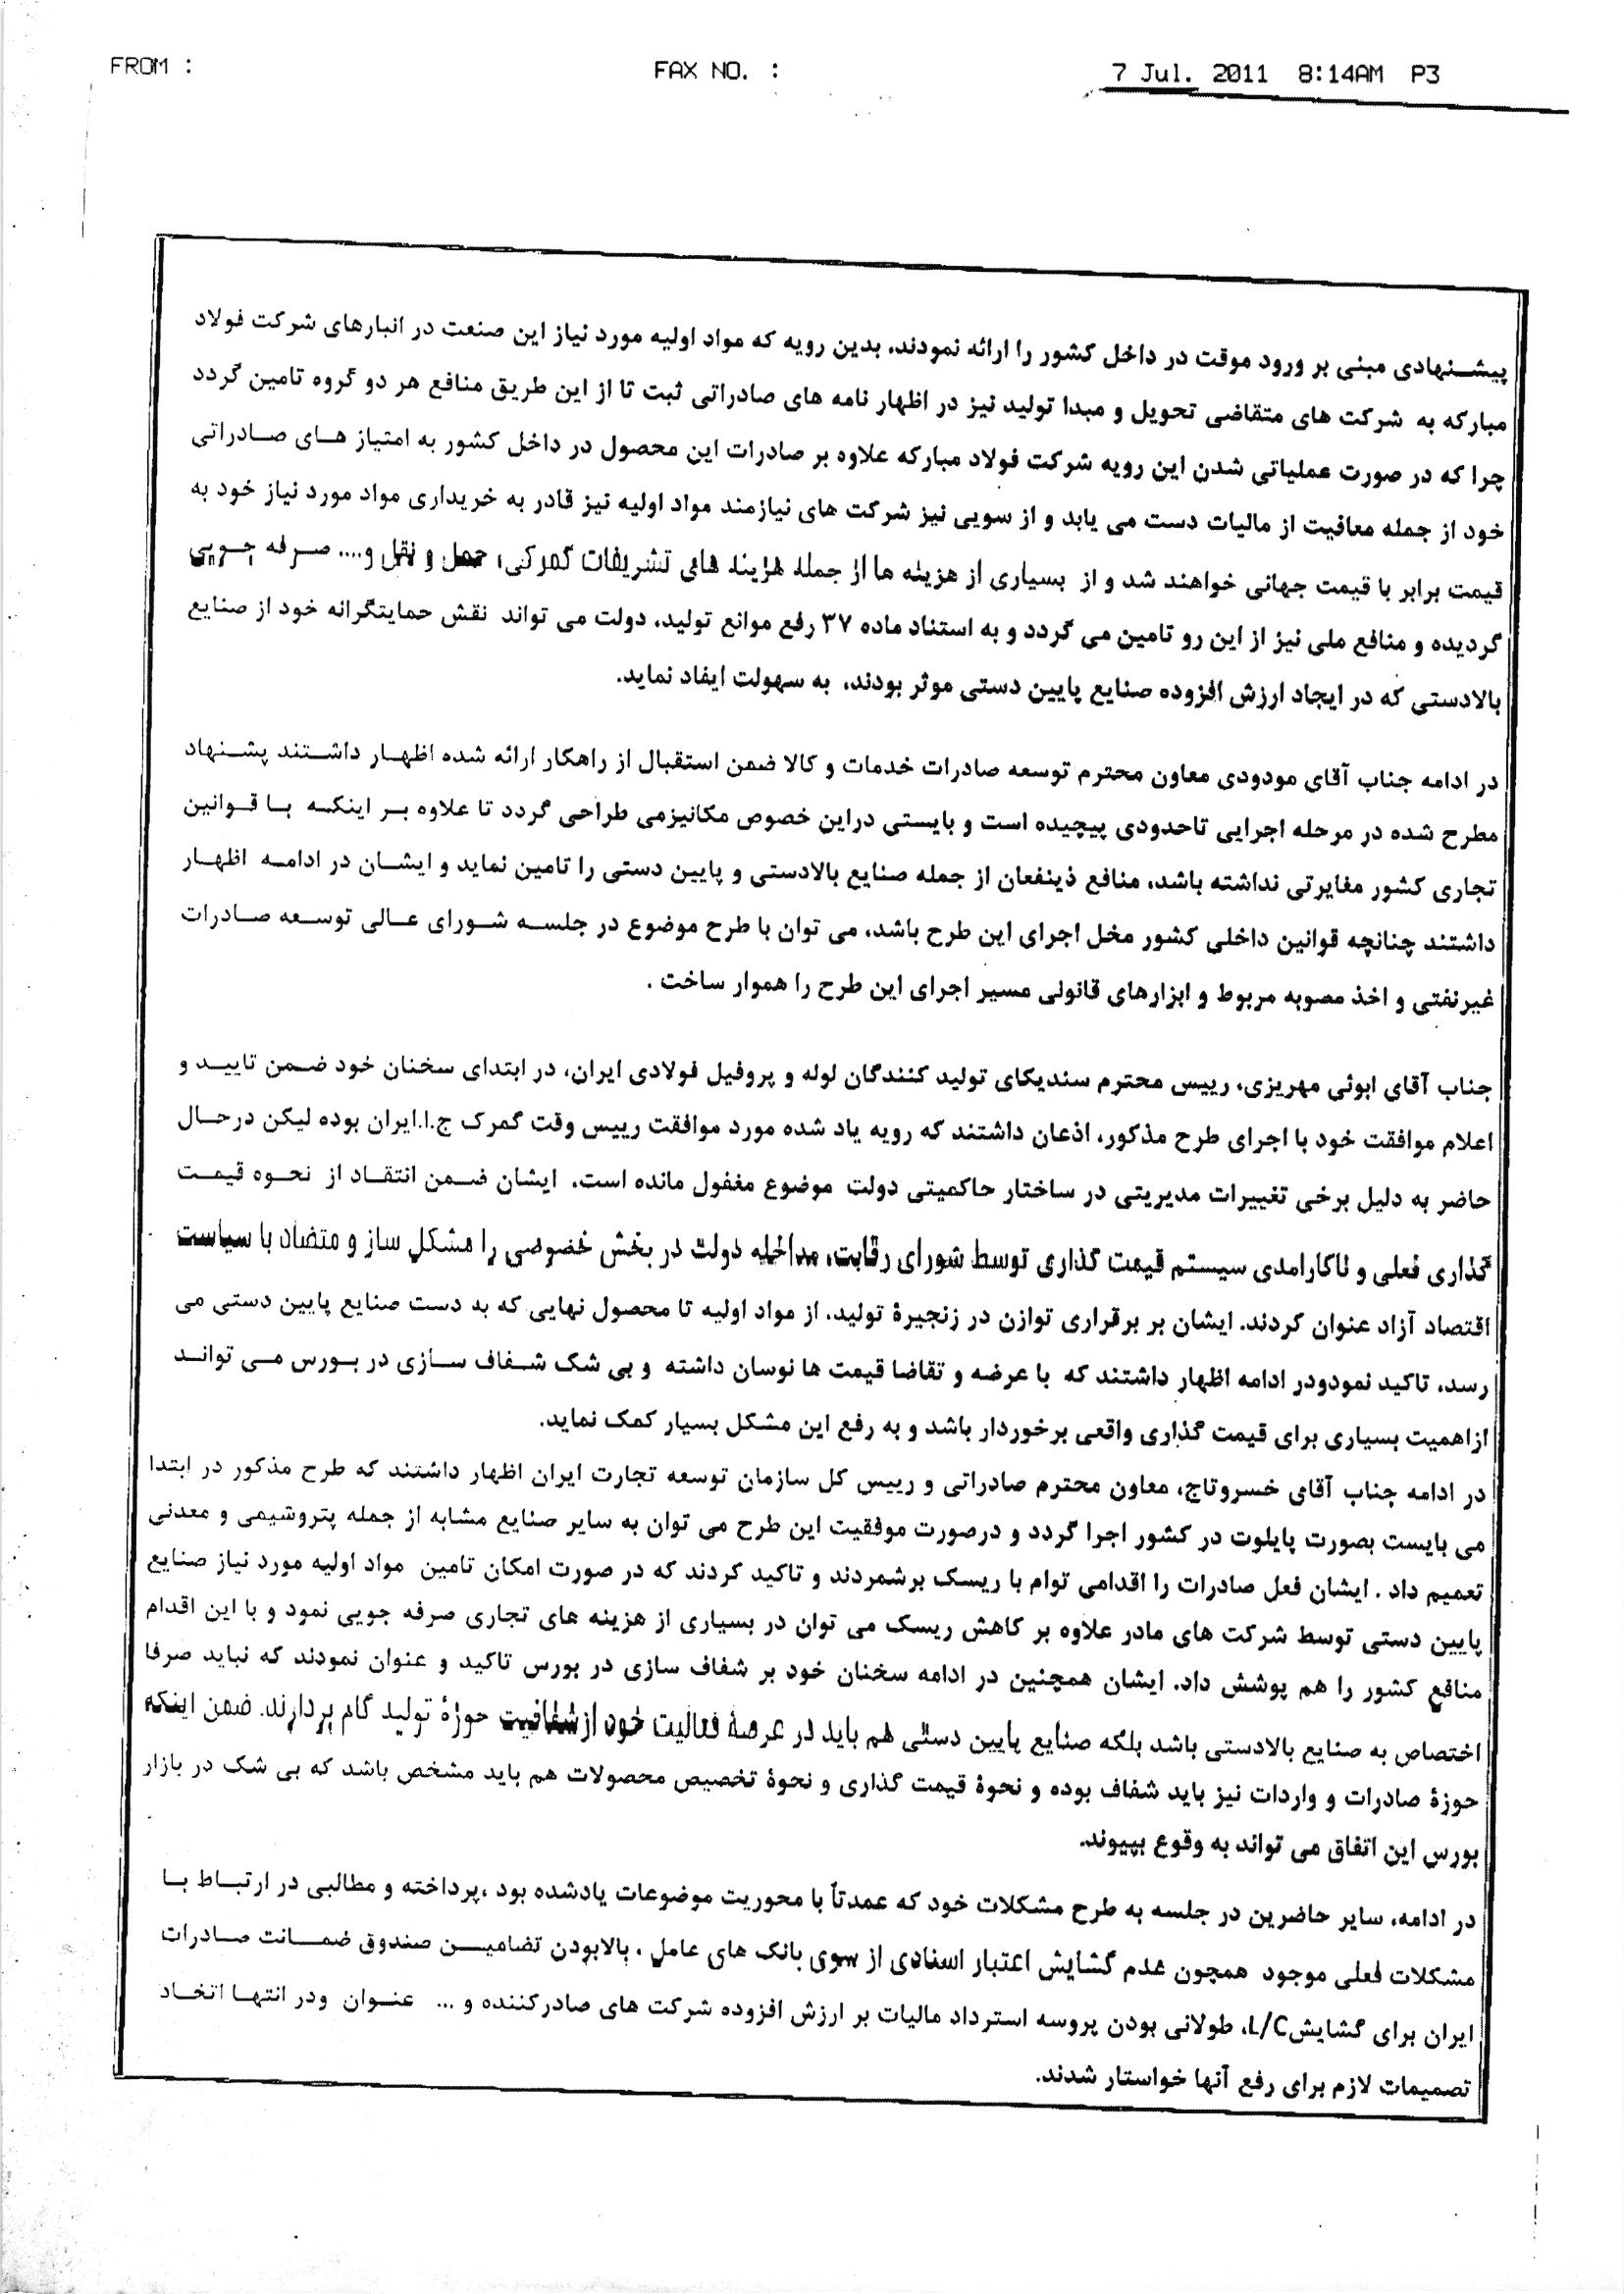 FROM : FAX NO. : 7 Jul. 2011 8:14AM P3
پیشـنهادی مبنی بر ورود موقت در داخل کشور را ارائه نمودند. بدین رویه که مواد اولیه مورد نیاز این صنعت در انبارهای شرکت فولاد
مبارکه به شرکت های متقاضی تحویل و مبدا تولید نیز در اظهار نامه های صادراتی ثبت تا از این طریق منافع هر دو گروه تامین گردد
چرا که در صورت عملیاتی شدن این رویه شرکت فولاد مبارکه علاوه بر صادرات این محصول در داخل کشور به امتیاز هـای صـادراتی
خود از جمله معافیت از مالیات دست می یابد و از سویی نیز شرکت های نیازمند مواد اولیه نیز قادر به خریداری مواد مورد نیاز خود به
قیمت برابر با قیمت جهانی خواهند شد و از بسیاری از هزینه ها از جمله هزینه های تشریفات گمرکی، حمل و نقل و.... صـرفه جـویی
گردیده و منافع ملی نیز از این رو تامین می گردد و به استناد ماده ۳۷ رفع موانع تولید، دولت می تواند نقش حمایتگرانه خود از صنایع
بالادستی که در ایجاد ارزش افزوده صنایع پایین دستی موثر بودند، به سهولت ایفاد نماید.
در ادامه جناب آقای مودودی معاون محترم توسعه صادرات خدمات و کالا ضمن استقبال از راهکار ارائه شده اظهـار داشـتند پشـنهاد
مطرح شده در مرحله اجرایی تاحدودی پیچیده است و بایستی دراین خصوص مکانیزمی طراحی گردد تا علاوه بـر اینکـه بـا قـوانین
تجاری کشور مغایرتی نداشته باشد، منافع ذینفعان از جمله صنایع بالادستی و پایین دستی را تامین نماید و ایشـان در ادامـه اظهـار
داشتند چنانچه قوانین داخلی کشور مخل اجرای این طرح باشد، می توان با طرح موضوع در جلسـه شـورای عـالی توسـعه صـادرات
غیرنفتی و اخذ مصوبه مربوط و ابزارهای قانونی مسیر اجرای این طرح را هموار ساخت .
جناب آقای ابوئی مهریزی، رییس محترم سندیکای تولید کنندگان لوله و پروفیل فولادی ایران، در ابتدای سخنان خود ضـمن تاییـد و
اعلام موافقت خود با اجرای طرح مذکور، اذعان داشتند که رویه یاد شده مورد موافقت رییس وقت گمرک ج.ا.ایران بوده لیکن درحـال
حاضر به دلیل برخی تغییرات مدیریتی در ساختار حاکمیتی دولت موضوع مغفول مانده است. ایشان ضـمن انتقـاد از نحـوه قیمـت
گذاری فعلی و ناکارامدی سیستم قیمت گذاری توسط شورای رقابت، مداخله دولت در بخش خصوصی را مشکل ساز و متضاد با سیاست
اقتصاد آزاد عنوان کردند. ایشان بر برقراری توازن در زنجیرۀ تولید، از مواد اولیه تا محصول نهایی که به دست صنایع پایین دستی می
رسد، تاکید نمودودر ادامه اظهار داشتند که با عرضه و تقاضا قیمت ها نوسان داشته و بی شک شـفاف سـازی در بـورس مـی توانـد
ازاهمیت بسیاری برای قیمت گذاری واقعی برخوردار باشد و به رفع این مشکل بسیار کمک نماید.
در ادامه جناب آقای خسروتاج، معاون محترم صادراتی و رییس کل سازمان توسعه تجارت ایران اظهار داشتند که طرح مذکور در ابتدا
می بایست بصورت پایلوت در کشور اجرا گردد و درصورت موفقیت این طرح می توان به سایر صنایع مشابه از جمله پتروشیمی و معدنی
تعمیم داد . ایشان فعل صادرات را اقدامی توام با ریسک برشمردند و تاکید کردند که در صورت امکان تامین مواد اولیه مورد نیاز صنایع
پایین دستی توسط شرکت های مادر علاوه بر کاهش ریسک می توان در بسیاری از هزینه های تجاری صرفه جویی نمود و با این اقدام
منافع کشور را هم پوشش داد. ایشان همچنین در ادامه سخنان خود بر شفاف سازی در بورس تاکید و عنوان نمودند که نباید صرفا
اختصاص به صنایع بالادستی باشد بلکه صنایع پایین دستی هم باید در عرصۀ فعالیت خود ازشفافیت حوزۀ تولید گام بردارند. ضمن اینکه
حوزۀ صادرات و واردات نیز باید شفاف بوده و نحوۀ قیمت گذاری و نحوۀ تخصیص محصولات هم باید مشخص باشد که بی شک در بازار
بورس این اتفاق می تواند به وقوع بپیوند.
در ادامه، سایر حاضرین در جلسه به طرح مشکلات خود که عمدتاً با محوریت موضوعات یادشده بود ،پرداخته و مطالبی در ارتبـاط بـا
مشکلات فعلی موجود همچون عدم گشایش اعتبار اسنادی از سوی بانک های عامل ، بالابودن تضامیـن صندوق ضمـانت صـادرات
ایران برای گشایشL/C، طولانی بودن پروسه استرداد مالیات بر ارزش افزوده شرکت های صادرکننده و ... عنـوان ودر انتهـا اتخـاد
تصمیمات لازم برای رفع آنها خواستار شدند.